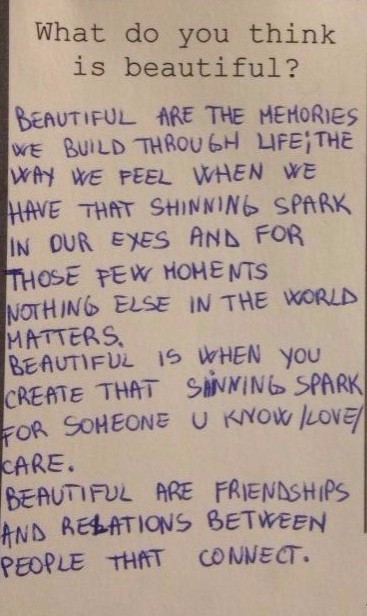 What do you think
is beautiful?
BEAUTIFUL ARE THE MEMORIES
WE BUILD THROUGH LIFE; THE
WAY WE FEEL WHEN WE
HAVE THAT SHINNING SPARK
IN OUR EYES AND FOR
THOSE FEW MOMENTS
NOTHING ELSE IN THE WORLD
MATTERS.
BEAUTIFUL IS WHEN YOU
CREATE THAT SINNING SPARK
FOR SOMEONE U KNOW /LOVE/
CARE.
BEAUTIFUL ARE FRIENDSHIPS
AND RELATIONS BETWEEN
PEOPLE THAT CONNECT.